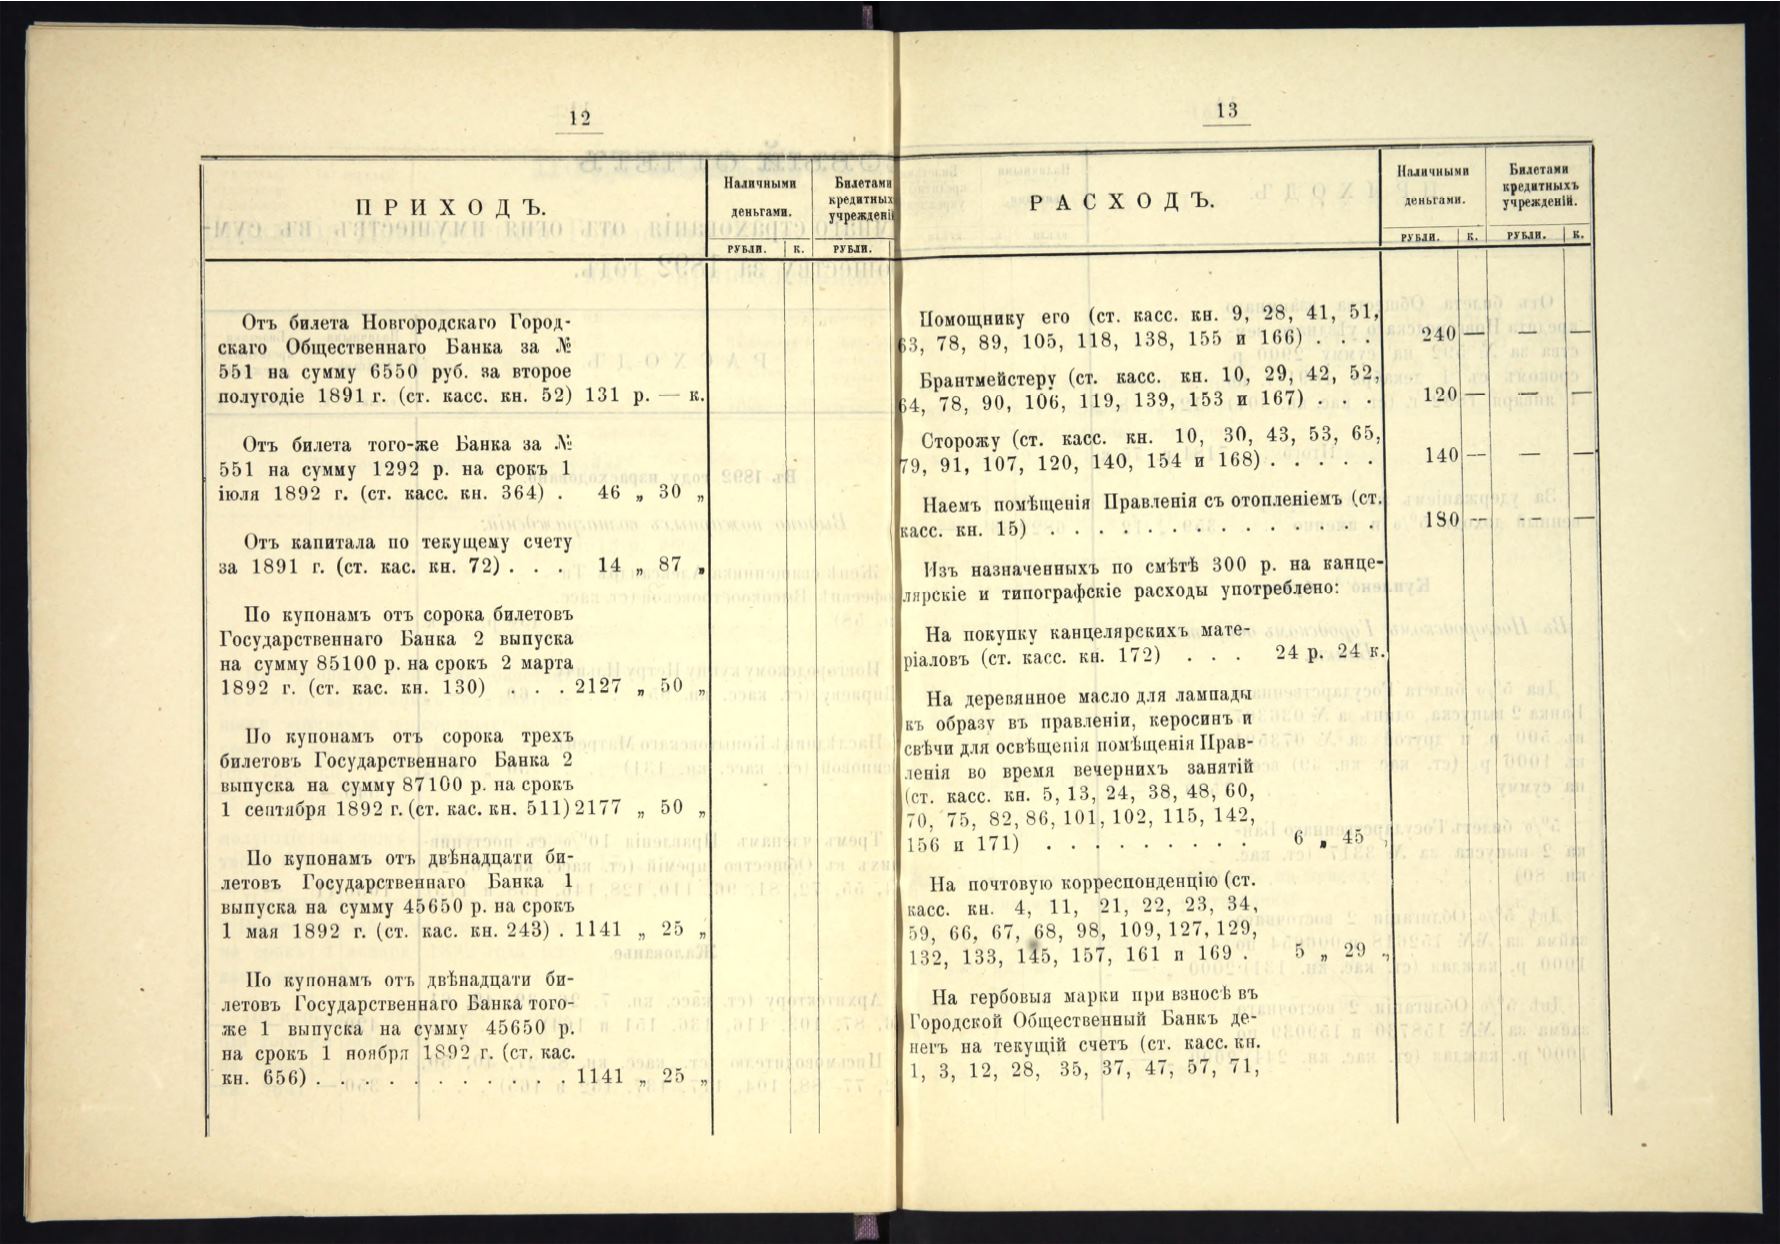 12
ПРИХОДЪ.
Наличными
деньгами.
Билетами
кредитных
учрежденi
РУБЛИ.
К.
РУБЛИ.
Отъ билета Новгородскаго Город-
скаго Общественнаго Банка за №
551 на сумму 6550 руб. за второе
полугодіе 1891 г. (ст. касс. кн. 52) 131 р. — к.
Отъ билета того-же Банка за №
551 на сумму 1292 р. на срокъ 1
іюля 1892 г. (ст. касс. кн. 364) . 46 „ 30 „
Отъ капитала по текущему счету
за 1891 г. (ст. кас. кн. 72) . . . 14 „ 87 „
По купонамъ отъ сорока билетовъ
Государственнаго Банка 2 выпуска
на сумму 85100 р. на срокъ 2 марта
1892 г. (ст. кас. кн. 130) . . . 2127 „ 50 „
По купонамъ отъ сорока трехъ
билетовъ Государственнаго Банка 2
выпуска на сумму 87100 р. на срокъ
1 сентября 1892 г. (ст. кас. кн. 511) 2177 „ 50 „
По купонамъ отъ двѣнадцати би-
летовъ Государственнаго Банка 1
выпуска на сумму 45650 р. на срокъ
1 мая 1892 г. (ст. кас. кн. 243) . 1141 „ 25 „
По купонамъ отъ двѣнадцати би-
летовъ Государственнаго Банка того-
же 1 выпуска на сумму 45650 р.
на срокъ 1 ноября 1892 г. (ст. кас.
кн. 656) . . . . . . . . . . . 1141 „ 25 „
13
РАСХОДЪ.
Наличными
деньгами.
Билетами
кредитныхъ
учрежденій.
РУБЛИ.
К.
РУБЛИ.
К.
Помощнику его (ст. касс. кн. 9, 28, 41, 51,
63, 78, 89, 105, 118, 138, 155 и 166) . . . 240 — — —
Брантмейстеру (ст. касс. кн. 10, 29, 42, 52,
64, 78, 90, 106, 119, 139, 153 и 167) . . . 120 — — —
Сторожу (ст. касс. кн. 10, 30, 43, 53, 65,
79, 91, 107, 120, 140, 154 и 168) . . . . . 140 — — —
Наемъ помѣщенія Правленія съ отопленіемъ (ст.
касс. кн. 15) . . . . . . . . . . . . . . 180 — — —
Изъ назначенныхъ по смѣтѣ 300 р. на канце-
лярскіе и типографскіе расходы употреблено:
На покупку канцелярскихъ мате-
ріаловъ (ст. касс. кн. 172) . . . 24 р. 24 к.
На деревянное масло для лампады
къ образу въ правленіи, керосинъ и
свѣчи для освѣщенія помѣщенія Прав-
ленія во время вечернихъ занятій
(ст. касс. кн. 5, 13, 24, 38, 48, 60,
70, 75, 82, 86, 101, 102, 115, 142,
156 и 171) . . . . . . . . . 6 „ 45 „
На почтовую корреспонденцію (ст.
касс. кн. 4, 11, 21, 22, 23, 34,
59, 66, 67, 68, 98, 109, 127, 129,
132, 133, 145, 157, 161 и 169 . 5 „ 29 „
На гербовыя марки при взносѣ въ
Городской Общественный Банкъ де-
негъ на текущій счетъ (ст. касс. кн.
1, 3, 12, 28, 35, 37, 47, 57, 71,